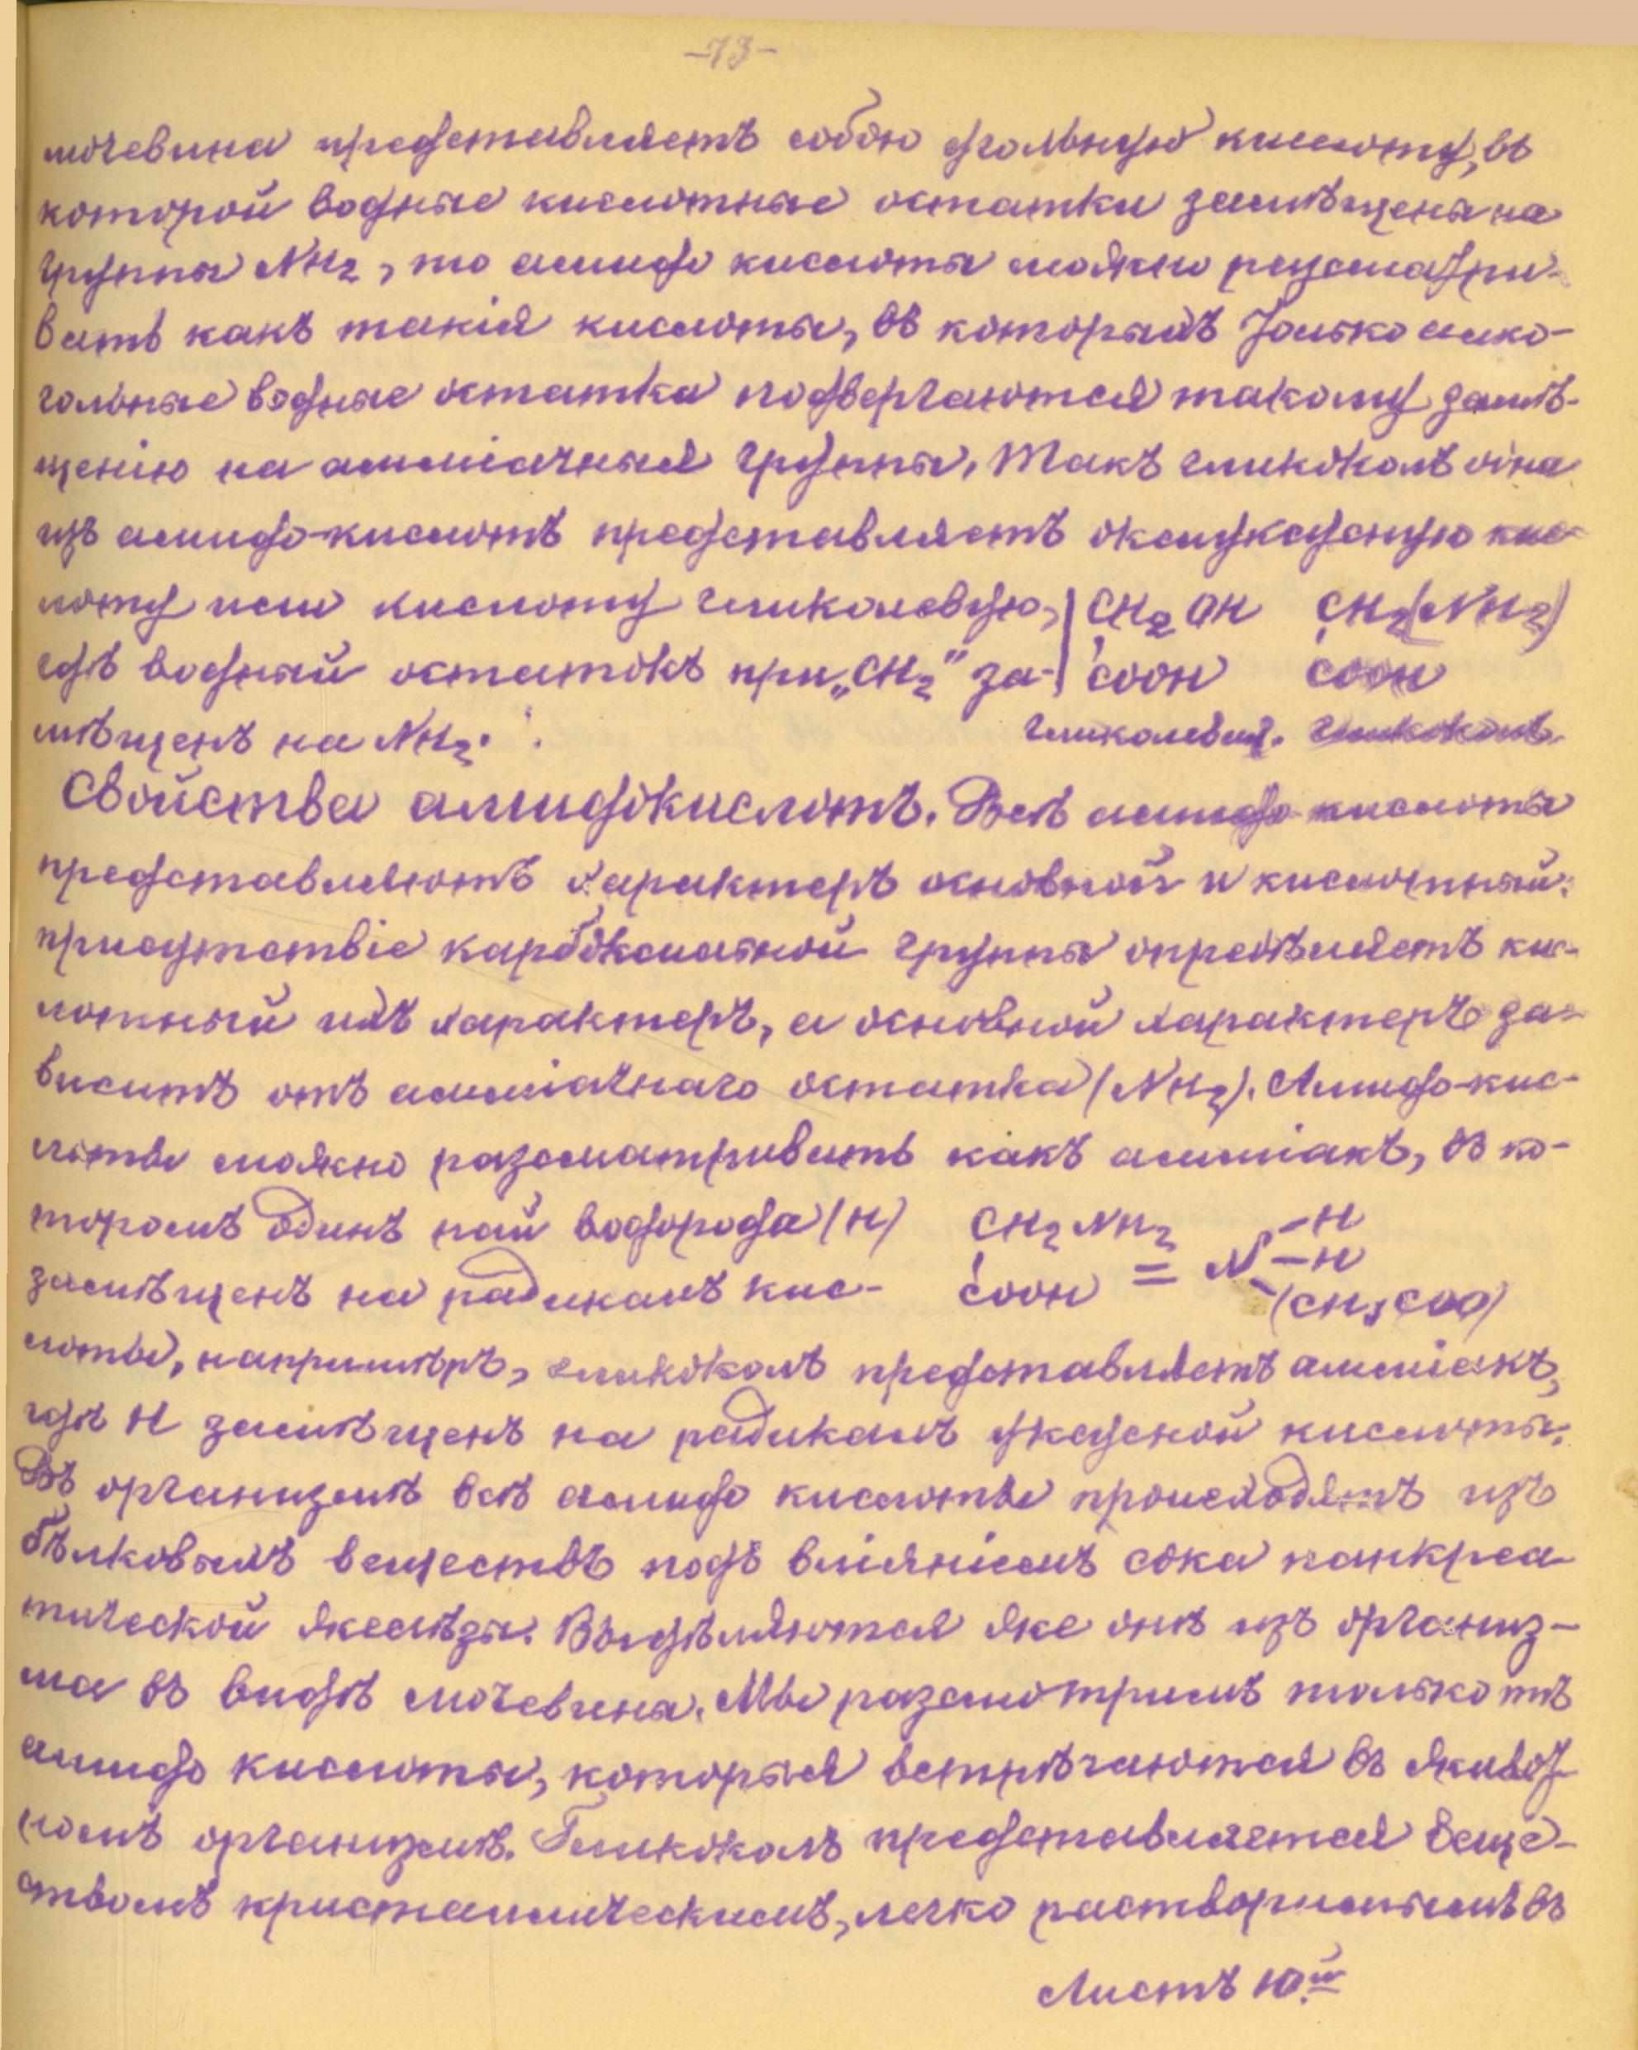 -73-
мочевина представляетъ собою угольную кислоту, въ
которой водные кислотные остатки замѣщены на
группы NH2, то амидо кислоты можно разсматри-
вать какъ такія кислоты, въ которыхъ только алко-
гольные водные остатка подвергаются такому замѣ-
щенію на амміачныя группы. Такъ гликоколъ одна
изъ амидо-кислотъ представляетъ оксиуксусную кис-
лоту или кислоту гликолевую, | CH2OH CH2(NH2)
гдѣ водный остатокъ при „CH2" за- | COOH COOH
мѣщенъ на NH2. гликолевая. гликоколъ.
Свойства амидокислотъ. Всѣ амидо-кислоты
представляютъ характеръ основной и кислотный:
присутствіе карбоксильной группы опредѣляетъ кис-
лотный ихъ характеръ, а основной характеръ за-
виситъ отъ амміачнаго остатка (NH2). Амидо-кис-
лоты можно разсматривать какъ амміакъ, въ ко-
торомъ одинъ пай водорода (H) CH2NH2 -H
замѣщенъ на радикалъ кис- COOH = N -H
-(CH3COO)
лоты, напримѣръ, гликоколъ представляетъ амміакъ,
гдѣ H замѣщенъ на радикалъ уксусной кислоты.
Въ организмѣ всѣ амидо кислоты происходятъ изъ
бѣлковыхъ веществъ подъ вліяніемъ сока панкреа
тической желѣзы. Выдѣляются же онѣ изъ организ-
ма въ видѣ мочевины. Мы разсмотримъ только тѣ
амидо кислоты, которыя встрѣчаются въ живот
номъ организмѣ. Гликоколъ представляется веще-
ствомъ кристаллическимъ, легко растворимымъ въ
Листъ 10.й